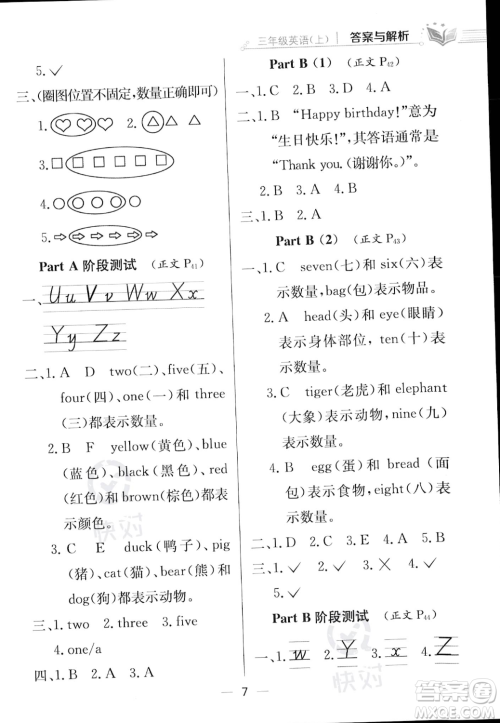 三年级英语(上) 答案与解析
5. ✓
三、(圈图位置不固定,数量等同即可)
1. ♡♡♡ 2. △△△
3. □□□□□□
4. ○○○○
5. ⇨⇨⇨⇨⇨
Part A 阶段测试 (正文 P41)
一、Uu Vv Ww Xx
Yy Zz
二、1. A D two(二)、five(五)、
four(四)、one(一)和 three
(三)都表示数量。
2. B F yellow(黄色)、blue
(蓝色)、black(黑色)、red
(红色)和 brown(棕色)都表
示颜色。
3. C E duck(鸭子)、pig
(猪)、cat(猫)、bear(熊)和
dog(狗)都表示动物。
三、1. two 2. three 3. five
4. one/a
四、1. B 2. A 3. A
Part B (1) (正文 P42)
一、1. C 2. B 3. D 4. A
二、1. B “Happy birthday!”意为
“生日快乐!”,其答语通常是
“Thank you. (谢谢你。)”。
2. B 3. A
三、1. B 2. A
Part B (2) (正文 P43)
一、1. C seven(七)和 six(六)表
示数量,bag(包)表示物品。
2. A head(头)和 eye(眼睛)
表示身体部位,ten(十)表
示数量。
3. C tiger(老虎)和 elephant
(大象)表示动物,nine(九)
表示数量。
4. B egg(蛋)和 bread(面包)
表示食物,eight(八)表示
数量。
二、1. B 2. A 3. B
三、1. ✓ 2. × 3. ✓ 4. ×
5. ✓
Part B 阶段测试 (正文 P44)
一、1. w Y x Z
快对
快对
7